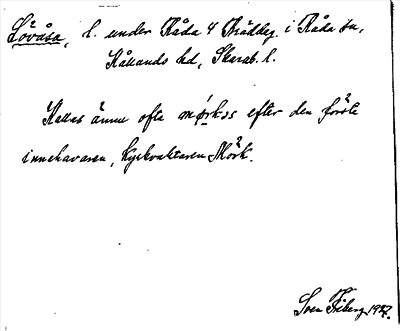 Lövåsa, l. under Råda 4 Brädleg. i Råda sn,
Kållands hd, Skarab. l.
Kallas ännu ofta mørkəs efter den förste
innehavaren, kyrkvaktaren Mörk.
Sven Friberg 1927.